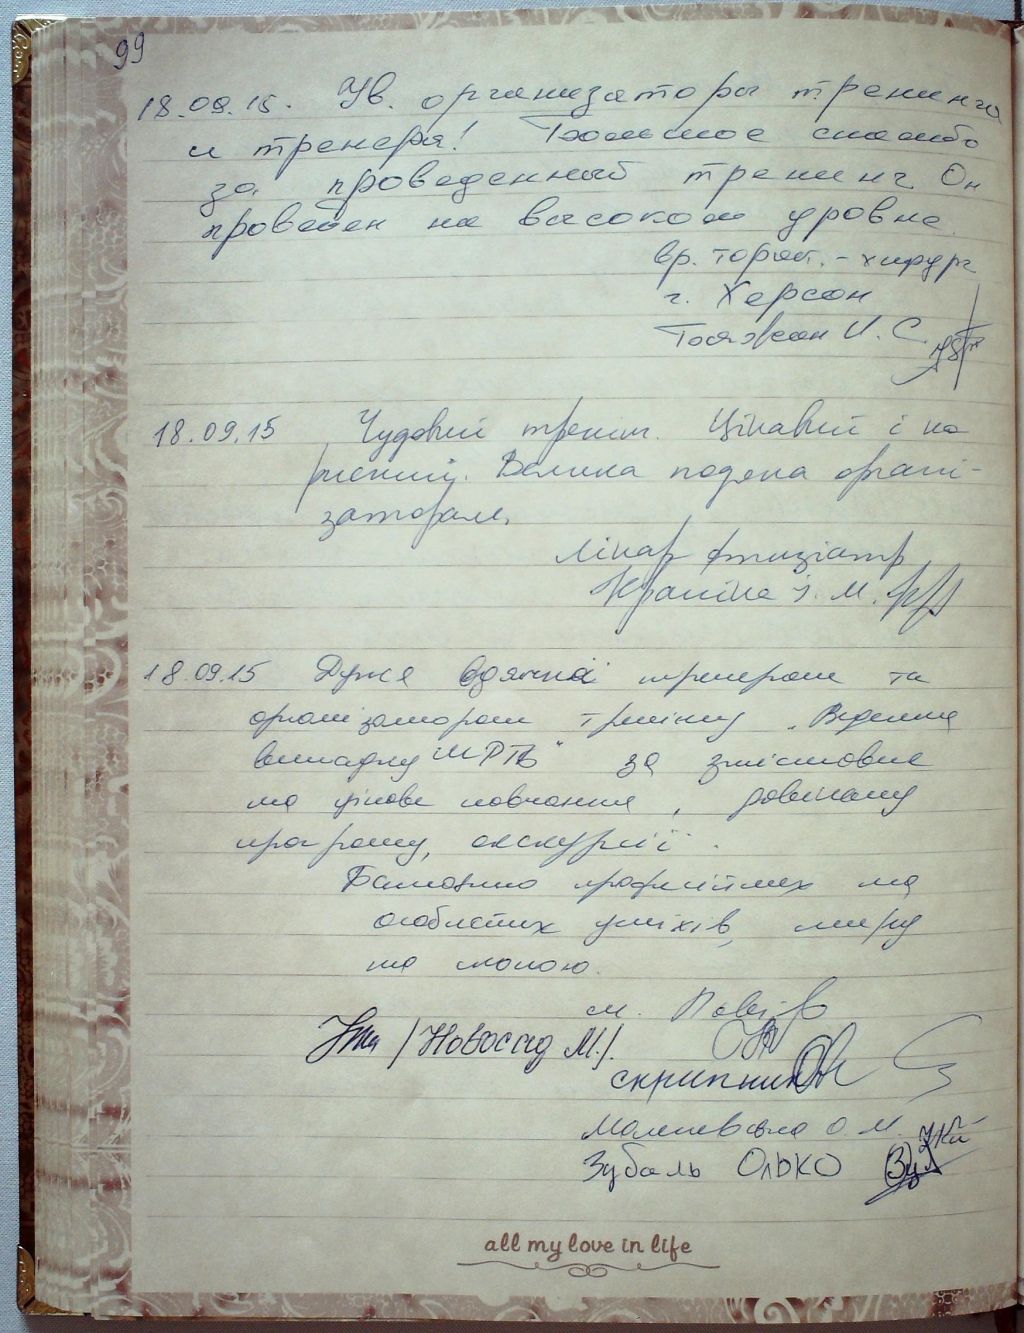 99
18.09.15. Ув. организаторы тренинга
и тренера! Большое спасибо
за проведенный тренинг. Он
проведен на высоком уровне.
вр. торак. - хирург
г. Херсон
И. С.
18.09.15 Чудовий тренінг. Цікавий і ко
рисний. Велика подяка органі-
заторам.
Лікар фтизіатр
І. М.
18.09.15 Дуже вдячні тренерам та
організаторам тренінгу "Ведення
випадку МРТБ" за змістовне
та цікаве навчання, розвинуту
програму, екскурсії.
Бажаємо професійних та
особистих успіхів, миру
та спокою.
м.
/Новосад М./
Скрипник
О. М.
Зубаль Олько
all my love in life